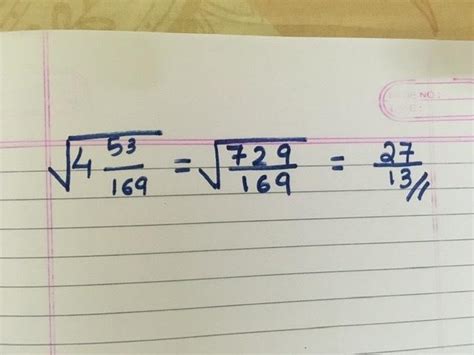 NO:
√4 53/169 = √729/169 = 27/13 //